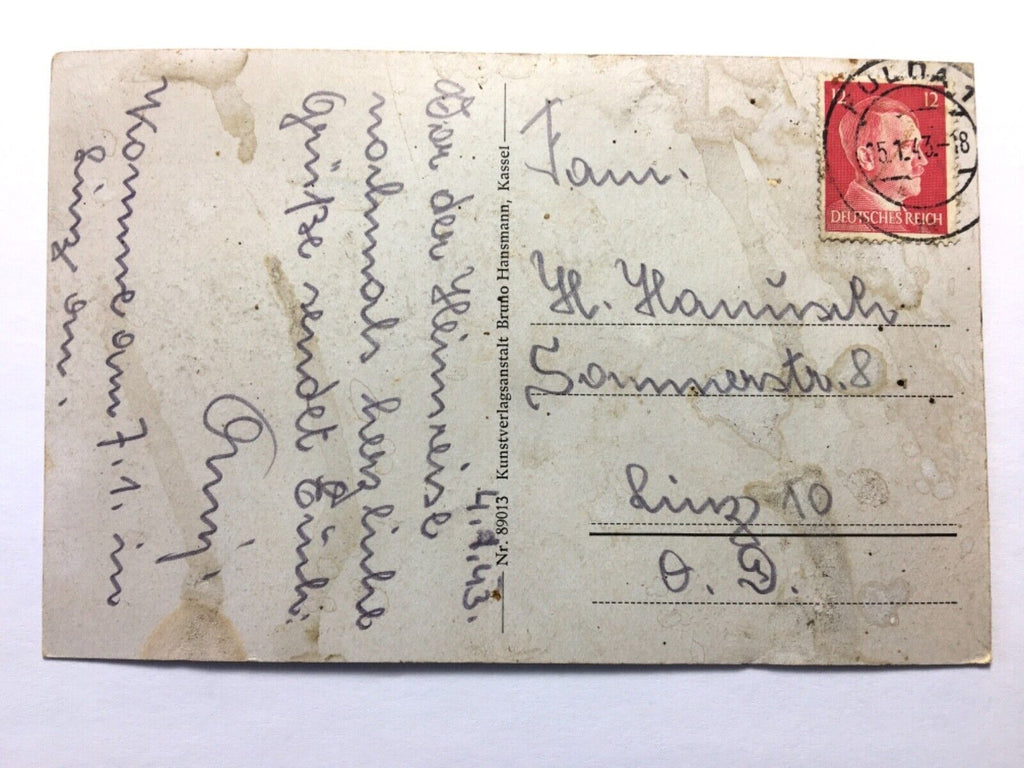 4.1.43.
Von der Heimreise
nochmals herzliche
Grüße sendet Euch
Komme am 7.1. in
Linz an.
Nr. 89013 Kunstverlagsanstalt Bruno Hansmann, Kassel
12 12
DEUTSCHES REICH
FULDA 1
5.1.43.-18
Fam.
H. Hanusch
Sommerstr. 8.
Linz 10
O. D.